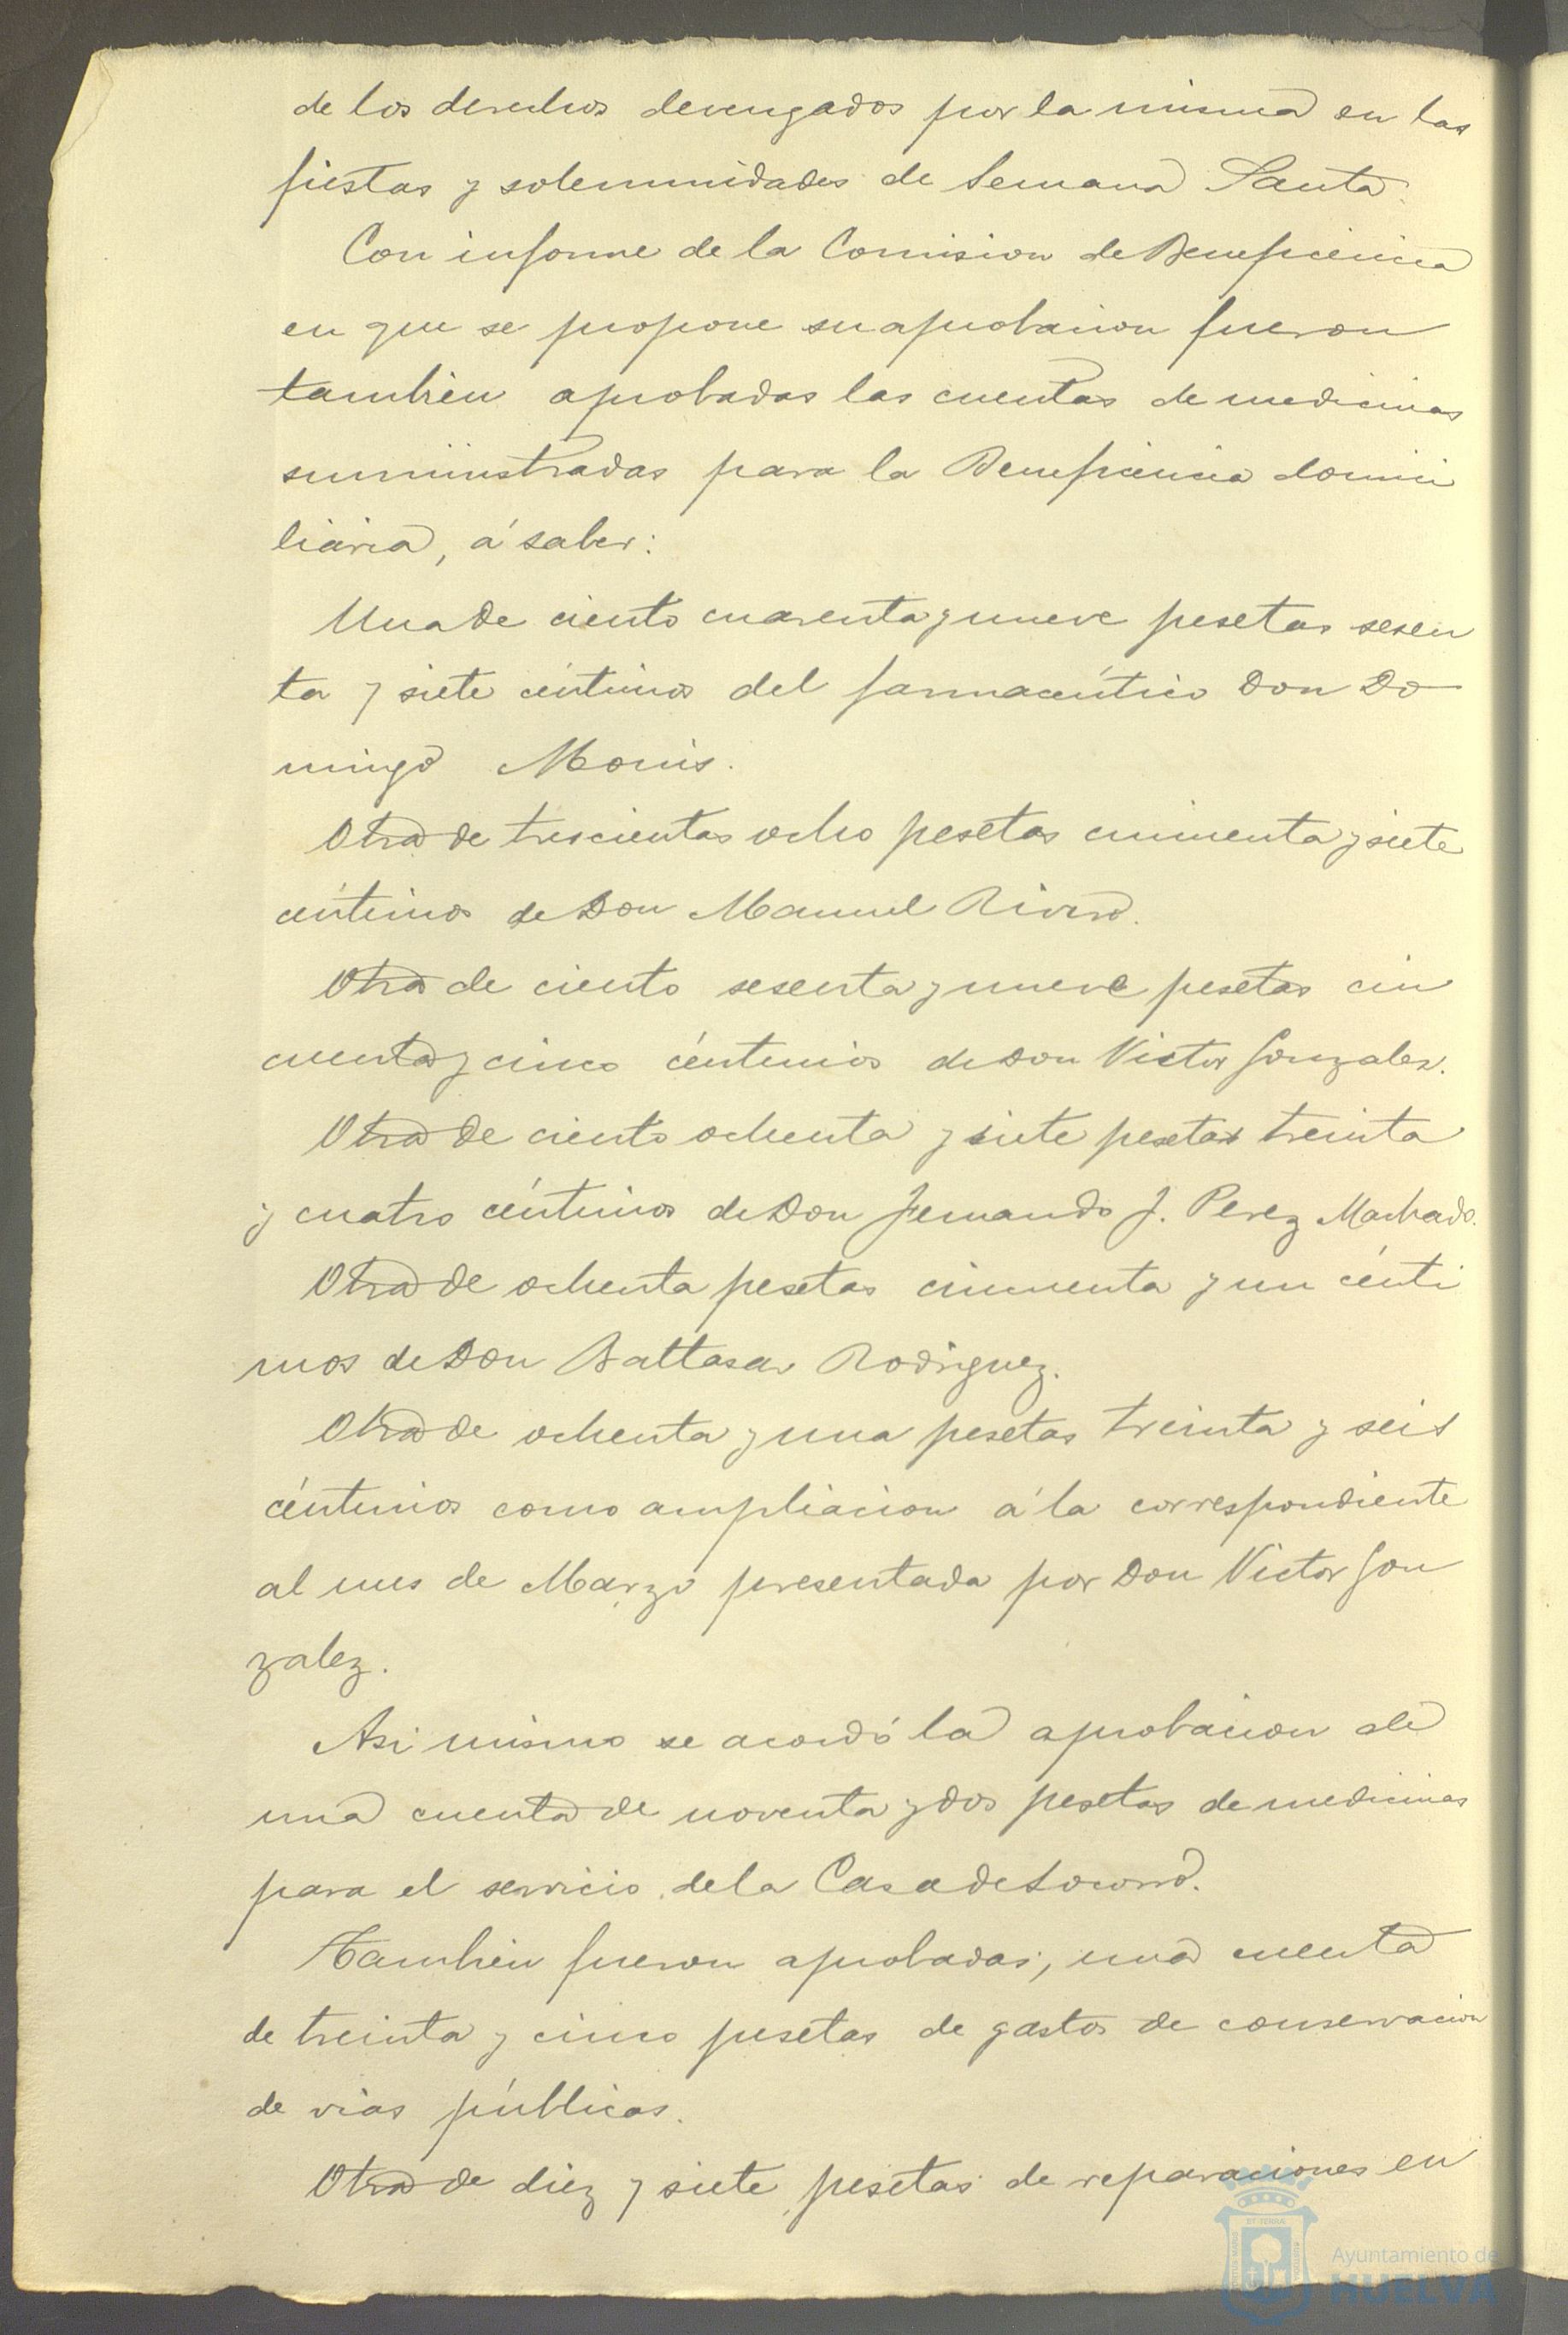 de los derechos devengados por la misma en las
fiestas y solemnidades de Semana Santa.
Con informe de la Comision de Beneficiencia
en que se propone su aprobacion fueron
tambien aprobadas las cuentas de medicinas
suministradas para la Beneficiencia domici
liaria, á saber:
Una de ciento cuarenta y nueve pesetas sesen
ta y siete céntimos del farmacéutico Don Do
mingo Monis.
Otra de trescientas ocho pesetas cincuenta y siete
céntimos de Don Manuel Rivero.
Otra de ciento sesenta y nueve pesetas cin
cuenta y cinco céntimos de Don Victor Gonzalez.
Otra de ciento ochenta y siete pesetas treinta
y cuatro céntimos de Don Fernando J. Perez Machado.
Otra de ochenta pesetas cincuenta y un cénti
mos de Don Baltasar Rodriguez.
Otra de ochenta y una pesetas treinta y seis
céntimos como ampliacion á la correspondiente
al mes de Marzo presentada por Don Victor Gon
zalez.
Asi mismo se acordó la aprobacion de
una cuenta de noventa y dos pesetas de medicinas
para el servicio de la Casa de Socorro.
Tambien fueron aprobadas; una cuenta
de treinta y cinco pesetas de gastos de conservacion
de vias públicas.
Otra de diez y siete pesetas de reparaciones en
Ayuntamiento de
HUELVA